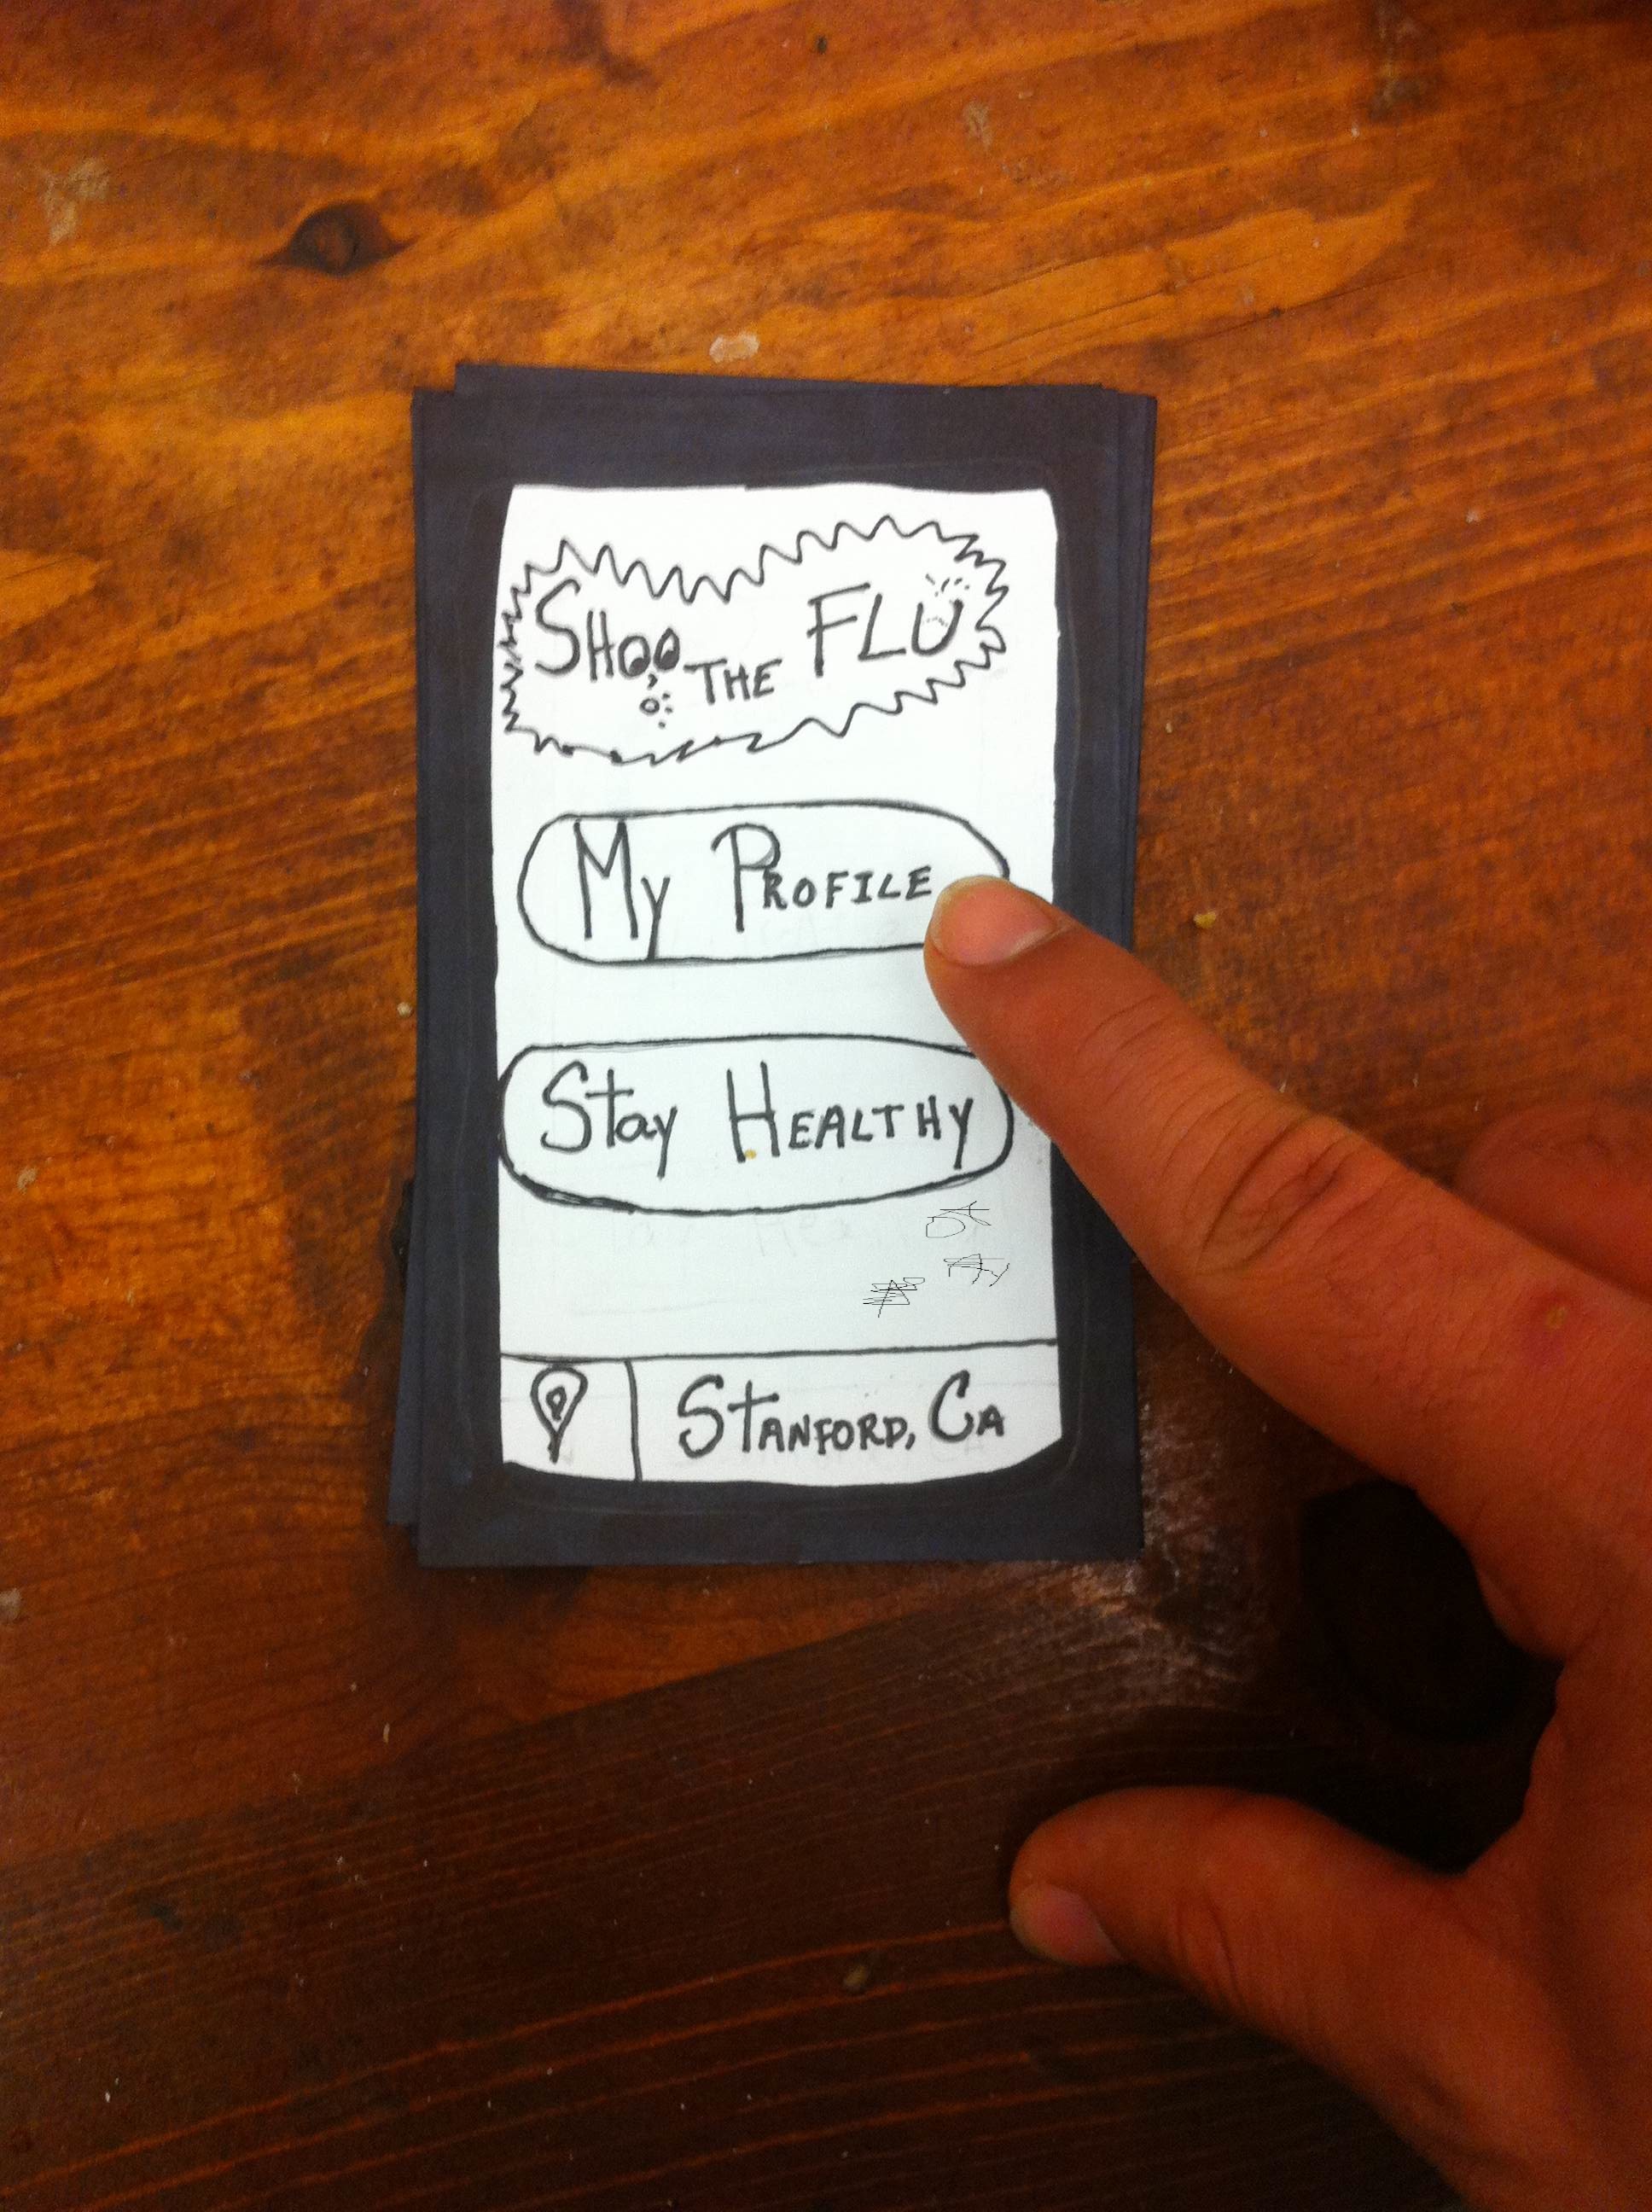 SHOO THE FLU
My PROFILE
Stay HEALTHY
STANFORD, CA